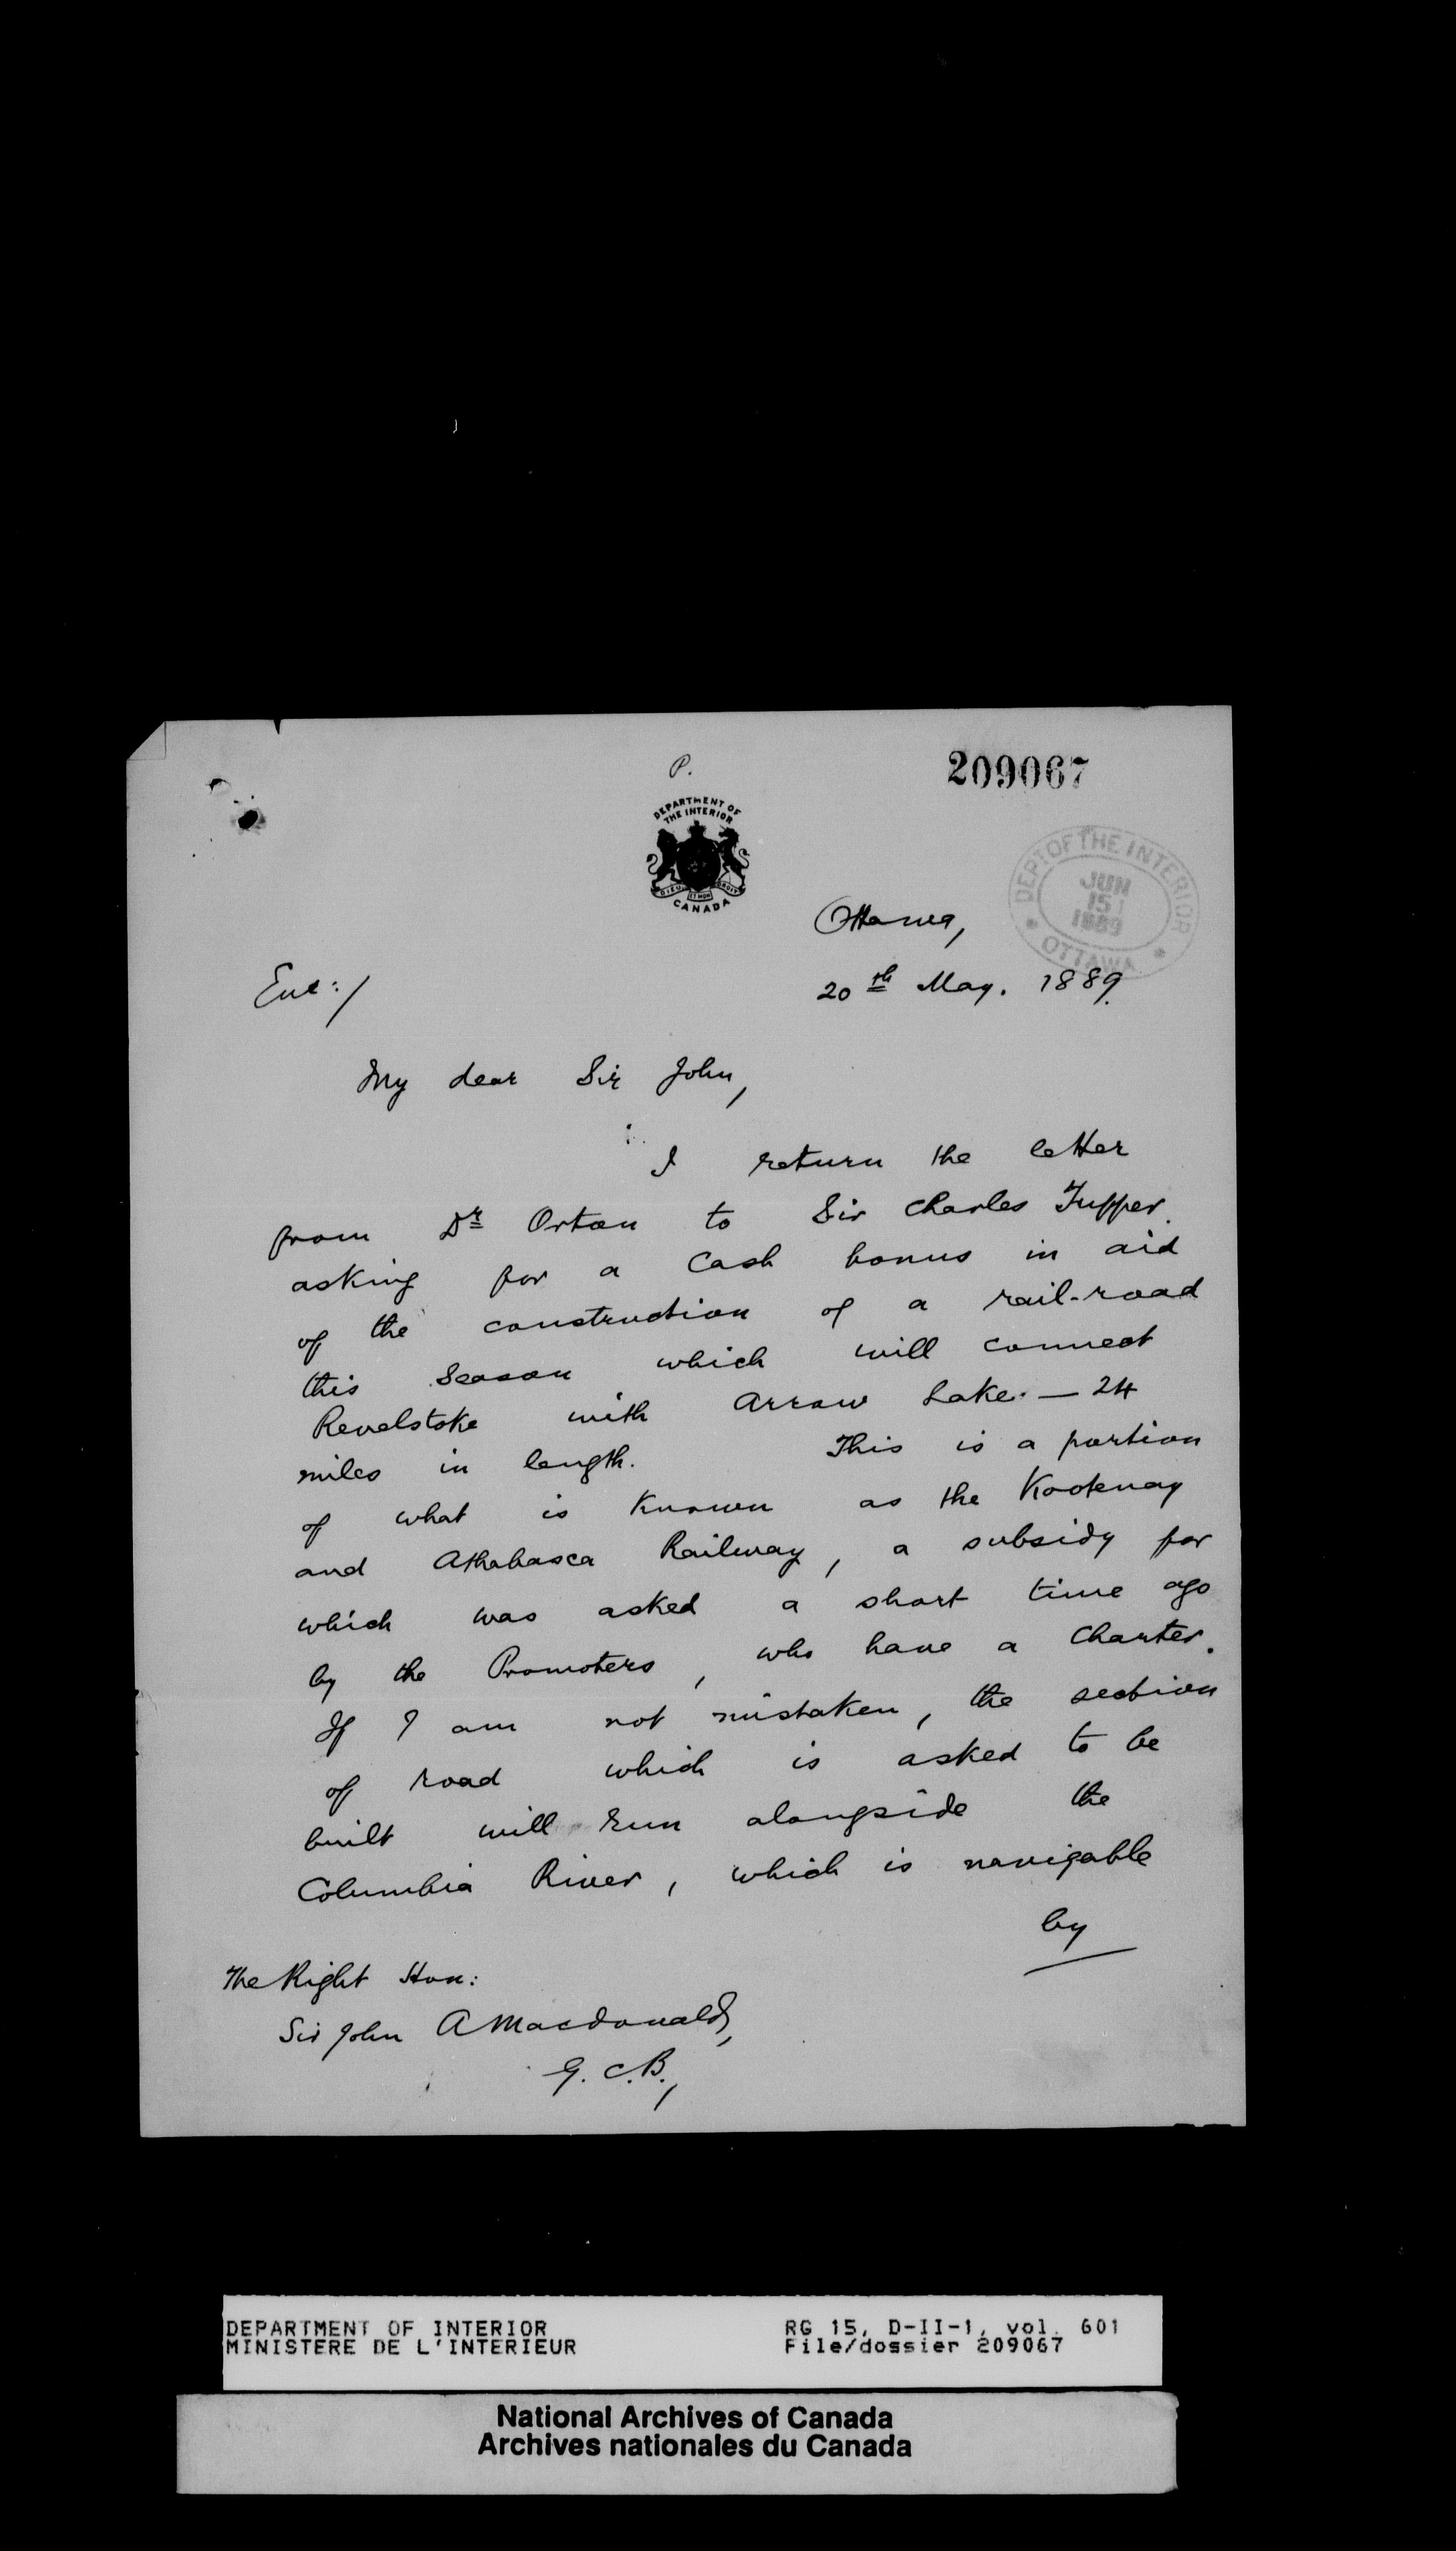 P.
209067
DEPARTMENT OF
THE INTERIOR
DIEU ET MON DROIT
CANADA
DEPT OF THE INTERIOR
JUN
15
1889
OTTAWA
Ottawa,
Enc:/
20th May. 1889.
My dear Sir John,
I return the letter
from Dr Orton to Sir Charles Tupper.
asking for a cash bonus in aid
of the construction of a rail-road
this season which will connect
Revelstoke with Arrow Lake. — 24
miles in length. This is a portion
of what is known as the Kootenay
and Athabasca Railway, a subsidy for
which was asked a short time ago
by the Promoters, who have a Charter.
If I am not mistaken, the section
of road which is asked to be
built will run alongside the
Columbia River, which is navigable
by
The Right Hon:
Sir John A Macdonald,
G.C.B.,
DEPARTMENT OF INTERIOR
MINISTERE DE L'INTERIEUR
RG 15, D-II-1, vol. 601
File/dossier 209067
National Archives of Canada
Archives nationales du Canada